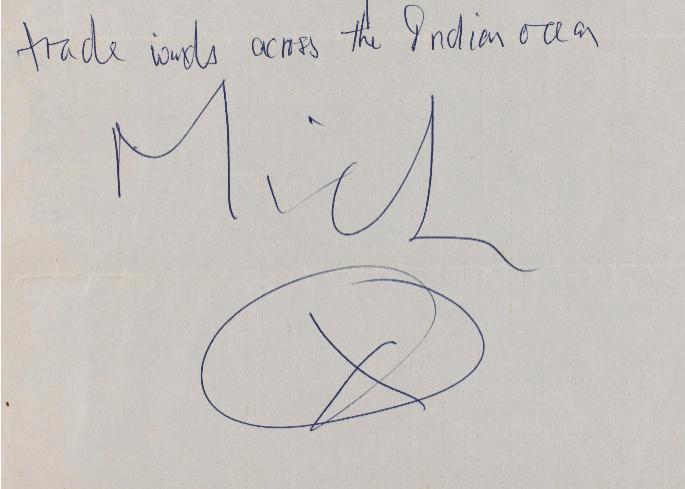 trade winds across the Indian ocean
Mick
X